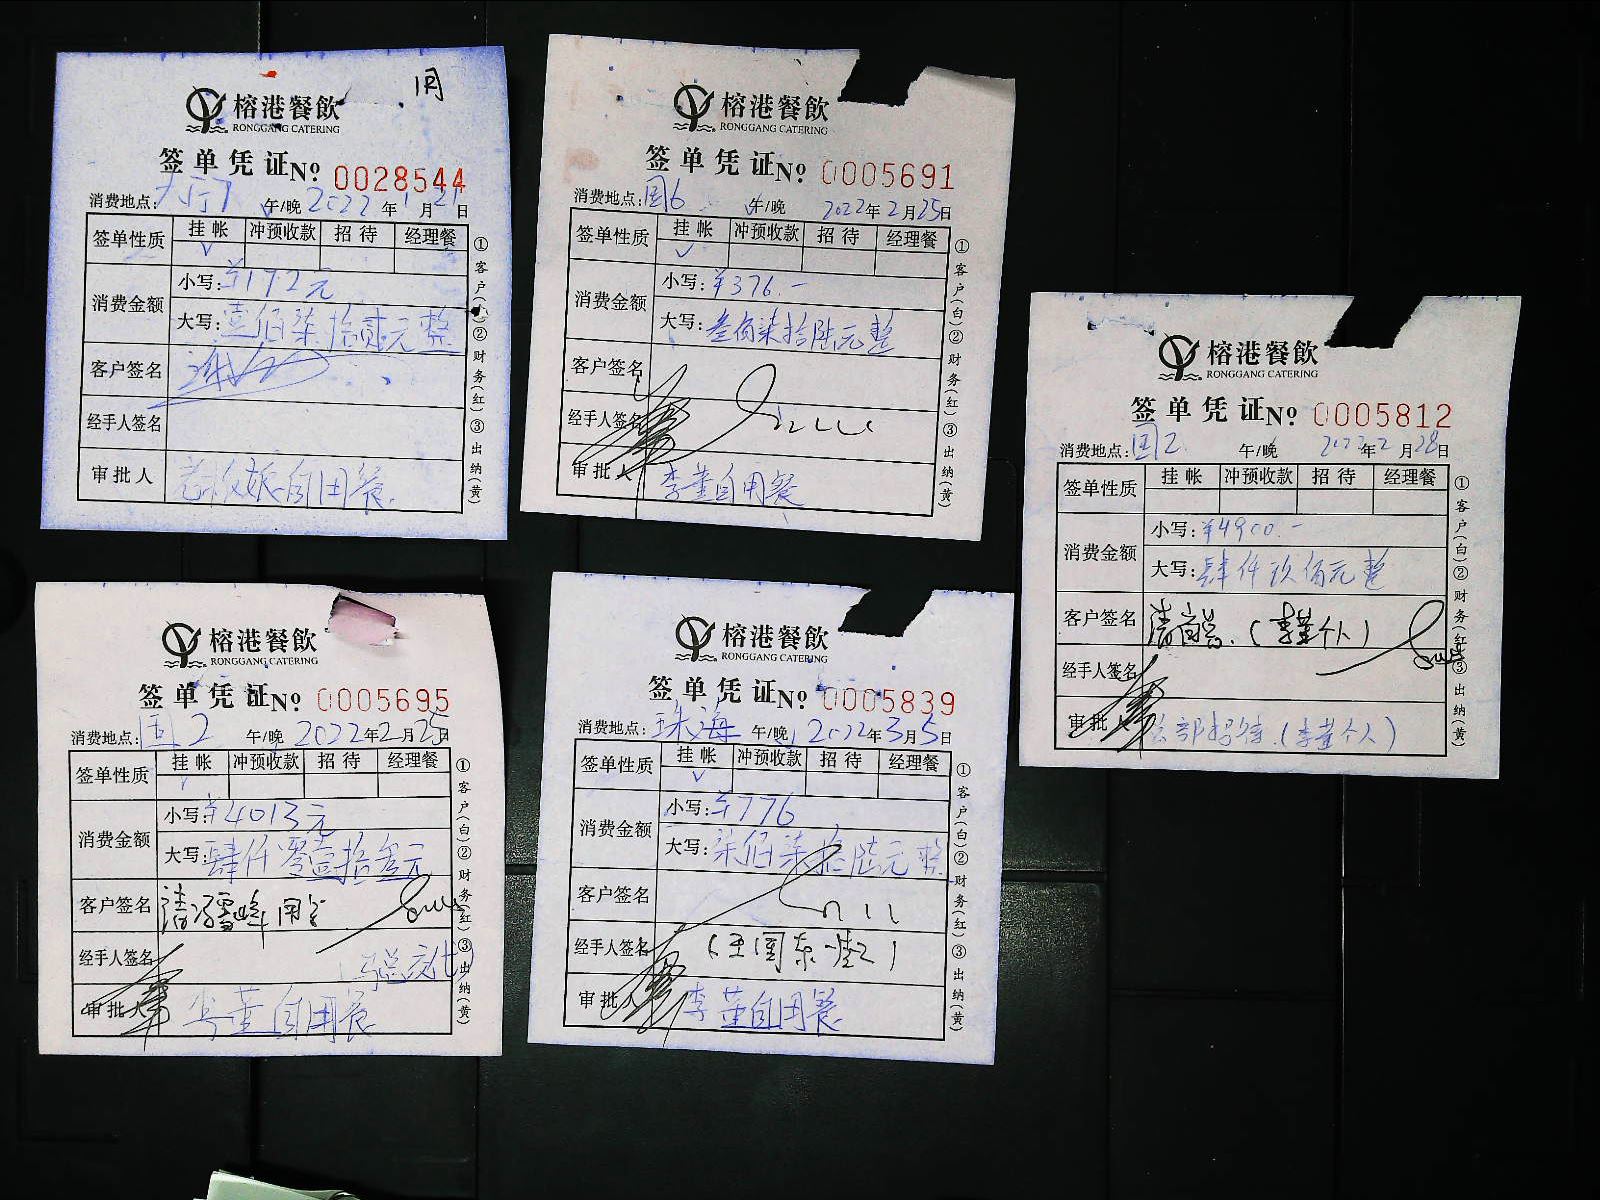 榕港餐飲
RONGGANG CATERING
签单凭证 № 0028544
消费地点: 大厅 午/晚 2022年1月21日
签单性质 挂帐 冲预收款 招待 经理餐
√
消费金额 小写: ¥172元
大写: 壹佰柒拾贰元整
客户签名
经手人签名
审批人 老板娘自用餐
①客户(白)②财务(红)③出纳(黄)
榕港餐飲
RONGGANG CATERING
签单凭证 № 0005691
消费地点: 国6 午/晚 2022年2月25日
签单性质 挂帐 冲预收款 招待 经理餐
√
消费金额 小写: ¥376.-
大写: 叁佰柒拾陆元整
客户签名
经手人签名
审批人 李董自用餐
①客户(白)②财务(红)③出纳(黄)
榕港餐飲
RONGGANG CATERING
签单凭证 № 0005812
消费地点: 国2 午/晚 2022年2月28日
签单性质 挂帐 冲预收款 招待 经理餐
消费金额 小写: ¥4900.-
大写: 肆仟玖佰元整
客户签名 (李董个人)
经手人签名
审批人 招待.(李董个人)
①客户(白)②财务(红)③出纳(黄)
榕港餐飲
RONGGANG CATERING
签单凭证 № 0005695
消费地点: 国2 午/晚 2022年2月25日
签单性质 挂帐 冲预收款 招待 经理餐
√
消费金额 小写: ¥4013元
大写: 肆仟零壹拾叁元
客户签名 请冯雪峰用
经手人签名
审批人 李董自用餐
①客户(白)②财务(红)③出纳(黄)
榕港餐飲
RONGGANG CATERING
签单凭证 № 0005839
消费地点: 珠海 午/晚 2022年3月5日
签单性质 挂帐 冲预收款 招待 经理餐
√
消费金额 小写: ¥776
大写: 柒佰柒拾陆元整
客户签名
经手人签名 (王国东
审批人 李董自用餐
①客户(白)②财务(红)③出纳(黄)